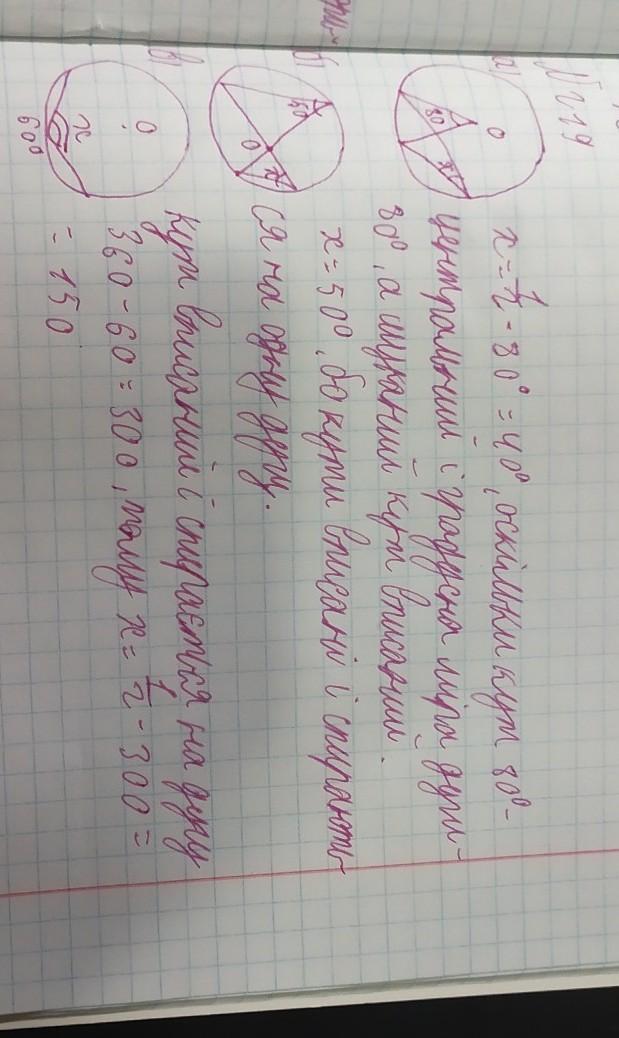 №219
а)
80
O
x
x = 1/2 · 80° = 40°, оскільки кут 80° -
центральний і градусна міра дуги -
80°, а шуканий кут вписаний.
б)
50
O
x
x = 50°, бо кути вписані і спирають-
ся на одну дугу.
в)
O
x
60°
кут вписаний і спирається на дугу
360 - 60 = 300, тому x = 1/2 · 300 =
= 150